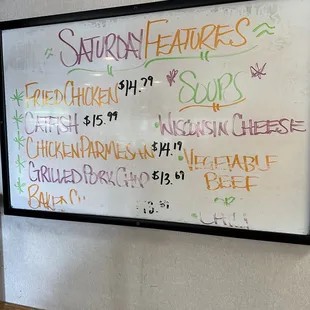 Saturday Features
Fried Chicken $14.79
Catfish $15.99
Chicken Parmesan $14.19
Grilled Pork Chop $13.69
Baked
Soups
Wisconsin Cheese
Vegetable
Beef
or
Chili